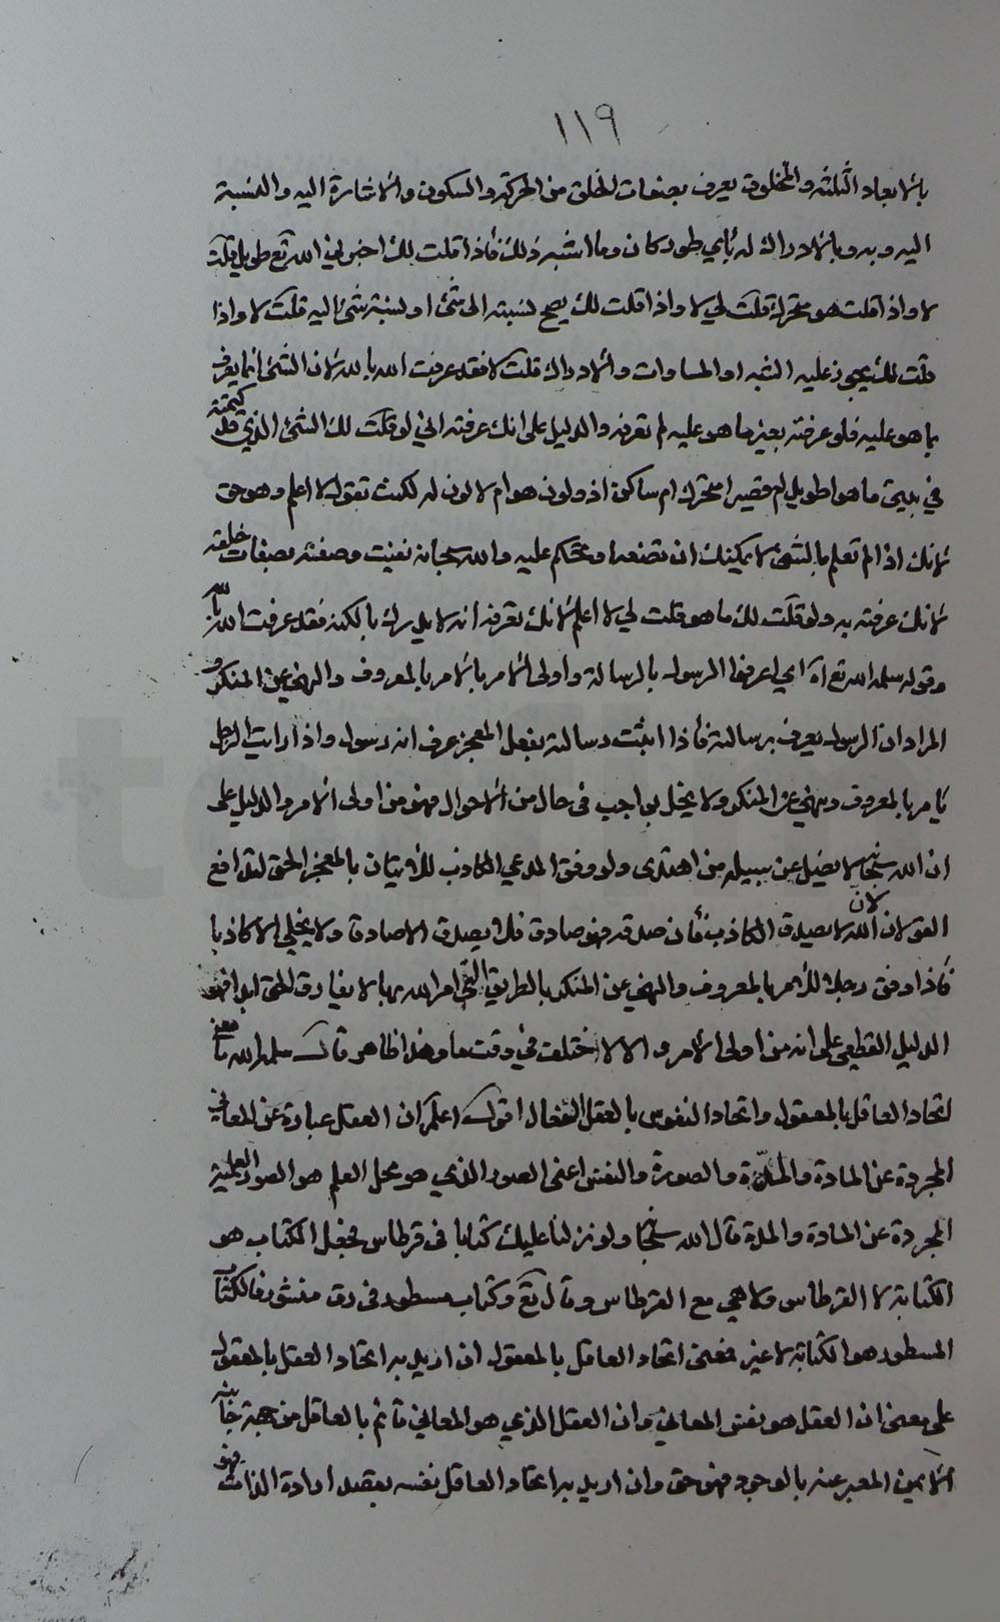 ١١٩
بالابعاد الثلثة والمخلوق يعرف بصفات الخلق من الحركة والسكون والاشارة اليه والنسبة
اليه وبه وبالادراك له باي طور كان وما اشبه ذلك فاذا قلت لك اخبرني الله تع طويل قلت
لا واذا قلت هو متحرك قلت لي لا واذا قلت لك يصح نسبته الى شئ او نسبة شئ اليه قلت لا واذا
قلت لك يجوز عليه الشبه او المساوات والادراك قلت لا فقد عرفت الله بالله لان الشئ انما يعرف
بما هو عليه فلو عرفته بغير ما هو عليه لم تعرفه والدليل على انك عرفته اني لو قلت لك الشئ الذي قد كتمته
في بيتي ما هو اطويل ام قصير امتحرك ام ساكن اذو لون هو ام لا لون له لكنت تقول لا اعلم وهو حق
لانك اذا لم تعلم بالشئ لا يمكنك ان تصفه او تحكم عليه والله سبحانه نفيت وصفته بصفات خلقه
لانك عرفته به ولو قلت لك ما هو قلت لي لا اعلم لانك تعرفه انه لا يدرك بالكنه فقد عرفت الله بالله
وقوله سلمه الله تع اه اي اعرفوا الرسول بالرسالة واولى الامر بالامر بالمعروف والنهي عن المنكر و
المراد ان الرسول يعرف برسالته فاذا اثبت رسالته بفعل المعجز عرف انه رسول واذا رايت الرجل
يامر بالمعروف وينهي عن المنكر ولا يخل بواجب في حال من الاحوال فهو من اولى الامر والدليل على
ان الله سبحانه لا يضل عن سبيله من اهتدى ولو وفق المدعي الكاذب للاتيان بالمعجز الحق لتدافع
القولان لان الله لا يصدق الكاذب فان صدقه فهو صادق فلا يصدق الا صادقا ولا يخلي الا كاذبا
فاذا وفق رجلا للامر بالمعروف والنهي عن المنكر بالطريق التي امر الله بها لا يفارق الحق ابدا فهو
الدليل القطعي على انه من اولى الامر والا لاختلف في وقت ما وهذا ظاهر قال سلمه الله ما معنى
اتحاد العاقل بالمعقول واتحاد النفوس بالعقل الفعال اقول اعلم ان العقل عبارة عن المعاني
المجردة عن المادة والمدة والصورة والنفس اعنى الصدر الذي هو محل العلم هو الصور العلمية
المجردة عن المادة والمدة قال الله سبحانه ولو نزلنا عليك كتابا في قرطاس فجعل الكتاب هو
الكتابة لا القرطاس ولا هي مع القرطاس وقال تع وكتاب مسطور في رق منشور فالكتاب
المسطور هو الكتابة لا غير فمعنى اتحاد العاقل بالمعقول ان اريد به اتحاد العقل بالمعقول
على معنى ان العقل هو نفس المعاني وان العقل الذي هو المعاني قائم بالعاقل من جهة جانبه
الايمن المعبر عنه بالوجود فهو حق وان اريد به اتحاد العاقل نفسه بقصد ارادة الذات فهو